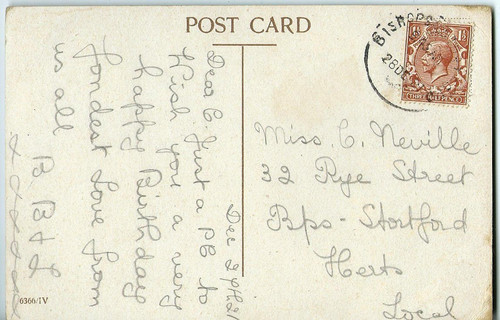 POST CARD
BISHOPS
28 DE
THREE HALFPENCE
Dec 27th 21
Dear C Just a PC to
Wish you a very
happy Birthday
fondest love from
us all
Miss. C. Neville
32 Rye Street
Bps - Stortford
Herts
Local
6366/IV